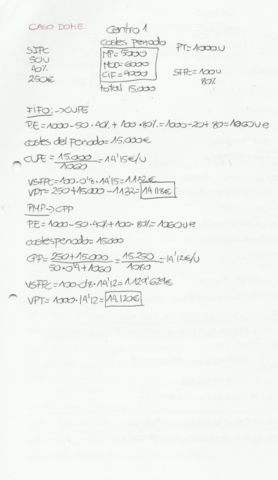 CASO DOKE: Centro 1
SIPC costes periodo PT=1000u
50u MP=5000
40% MOD=6000 SFPC=100u
250€ CIF=4000 80%
total 15.000
FIFO: → CUPE
PE=1000-50·40%+100·80%=1000-20+80=1060ue
costes del periodo=15.000€
CUPE=15.000/1060=14'15€/u
VSFPC=100·0'8·14'15=1132€
VPT=250+15.000-1132=14.118€
PMP→CPP
PE=1000-50·40%+100·80%=1060ue
costesperiodo=15000
CPP=250+15.000/50·0'4+1060=15.250/1080=14'12€/u
VSFPC=100·0'8·14'12=1.129'629€
VPT=1000·14'12=14.120€